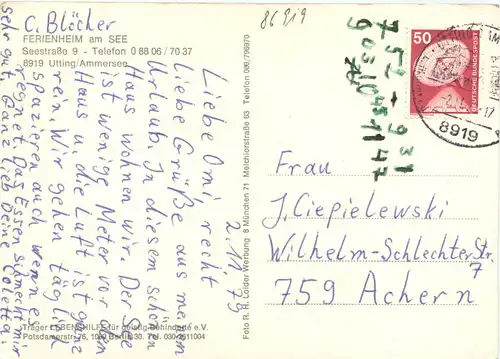 C. Blöcher
FERIENHEIM am SEE
Seestraße 9 - Telefon 0 88 06 / 70 37
8919 Utting/Ammersee
2.11.79
Liebe Omi, recht
liebe Grüße aus meinem
Urlaub. In diesem schönen
Haus wohnen wir. Der See
ist wenige Meter vor dem
Haus u. die Luft ist ganz
rein. Wir gehen täglich
spazieren auch wenn es
regnet. Das Essen schmeckt mir
sehr gut. Ganz lieb Deine Coletta.
Träger LEBENSHILFE für geistig Behinderte e.V.
Foto R. R. Loider Werbung 8 München 71 Melchiorstraße 63 Telefon 089/796970
86919
752 → 931
50
DEUTSCHE BUNDESPOST
8919
Frau
J. Ciepielewski
Wilhelm-Schlechter Str.
7
759 Achern